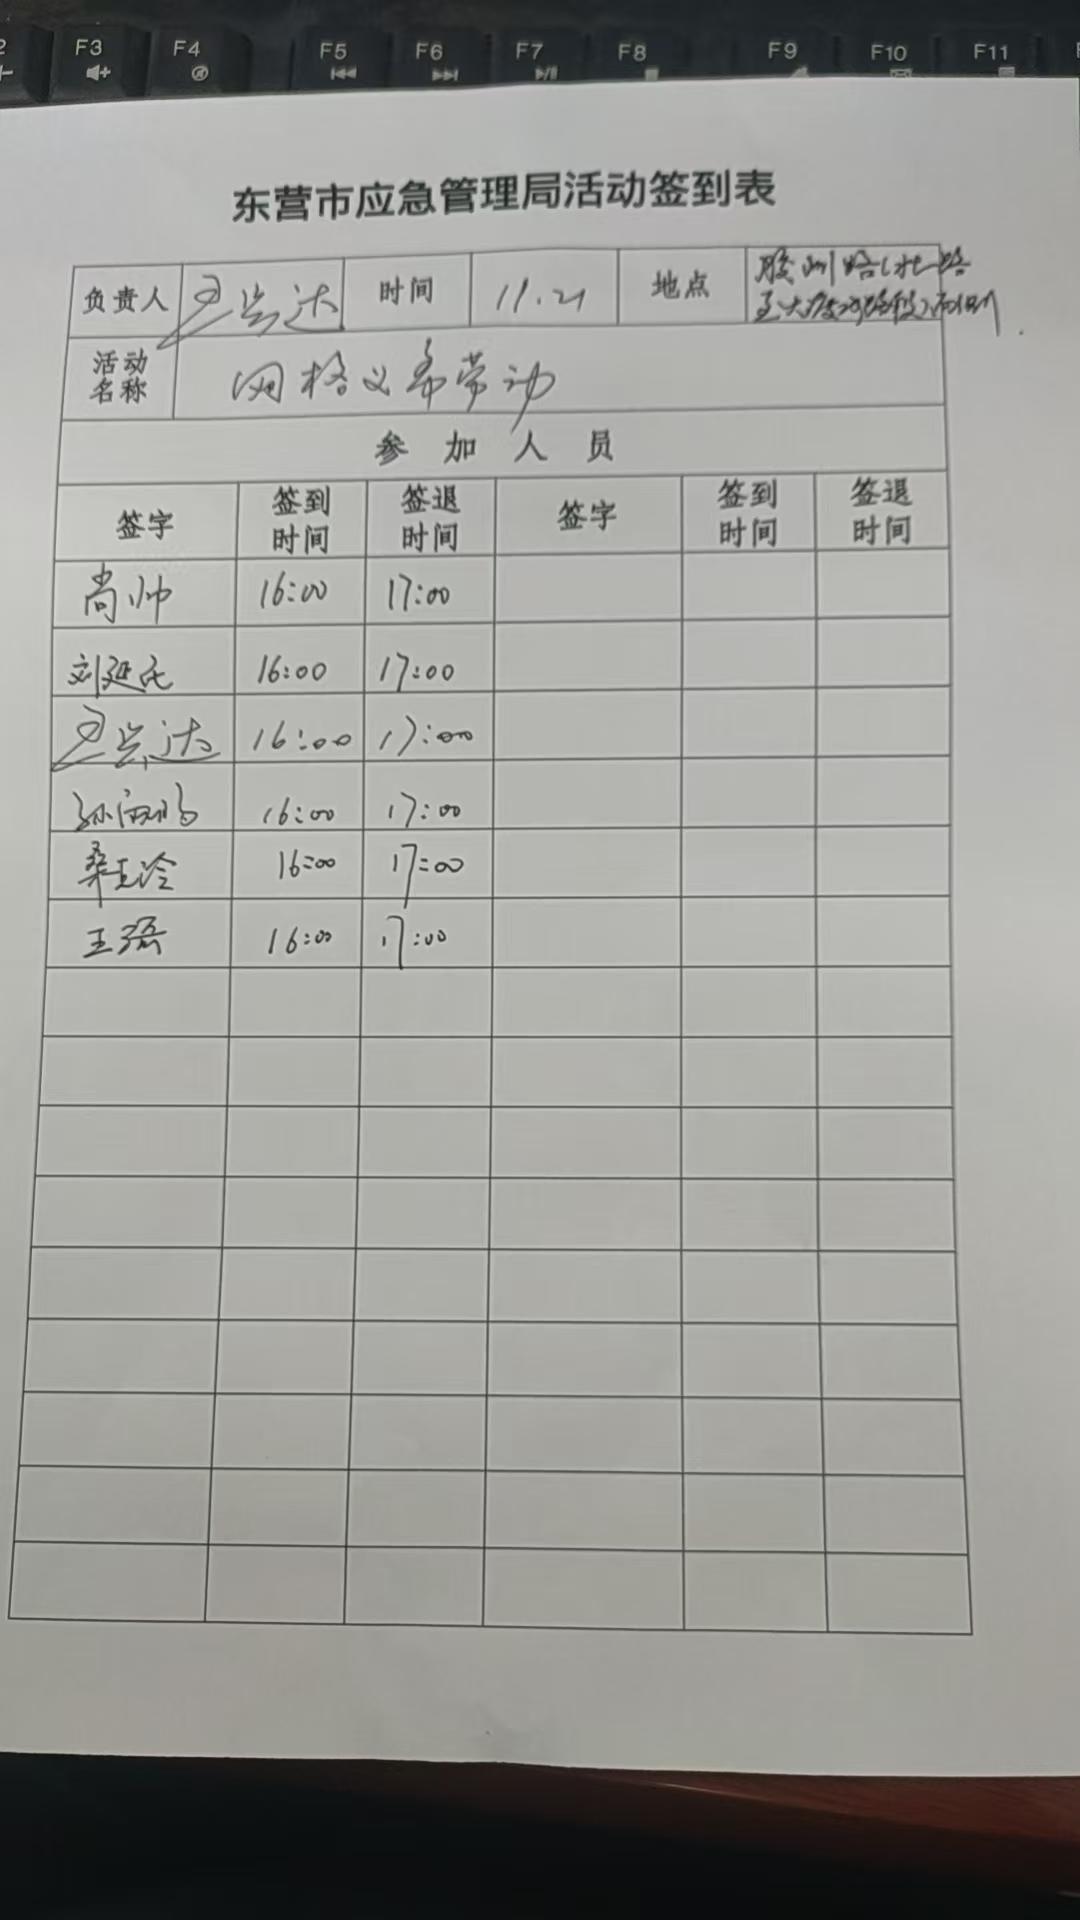 F3 F4 F5 F6 F7 F8 F9 F10 F11
东营市应急管理局活动签到表
负责人 时间 11.21 地点 胶州路(北一路
至大渡河路段)西侧
活动名称 网格义务劳动
参加人员
签字 签到时间 签退时间 签字 签到时间 签退时间
尚帅 16:00 17:00
刘延 16:00 17:00
16:00 17:00
16:00 17:00
桑 16:00 17:00
王强 16:00 17:00